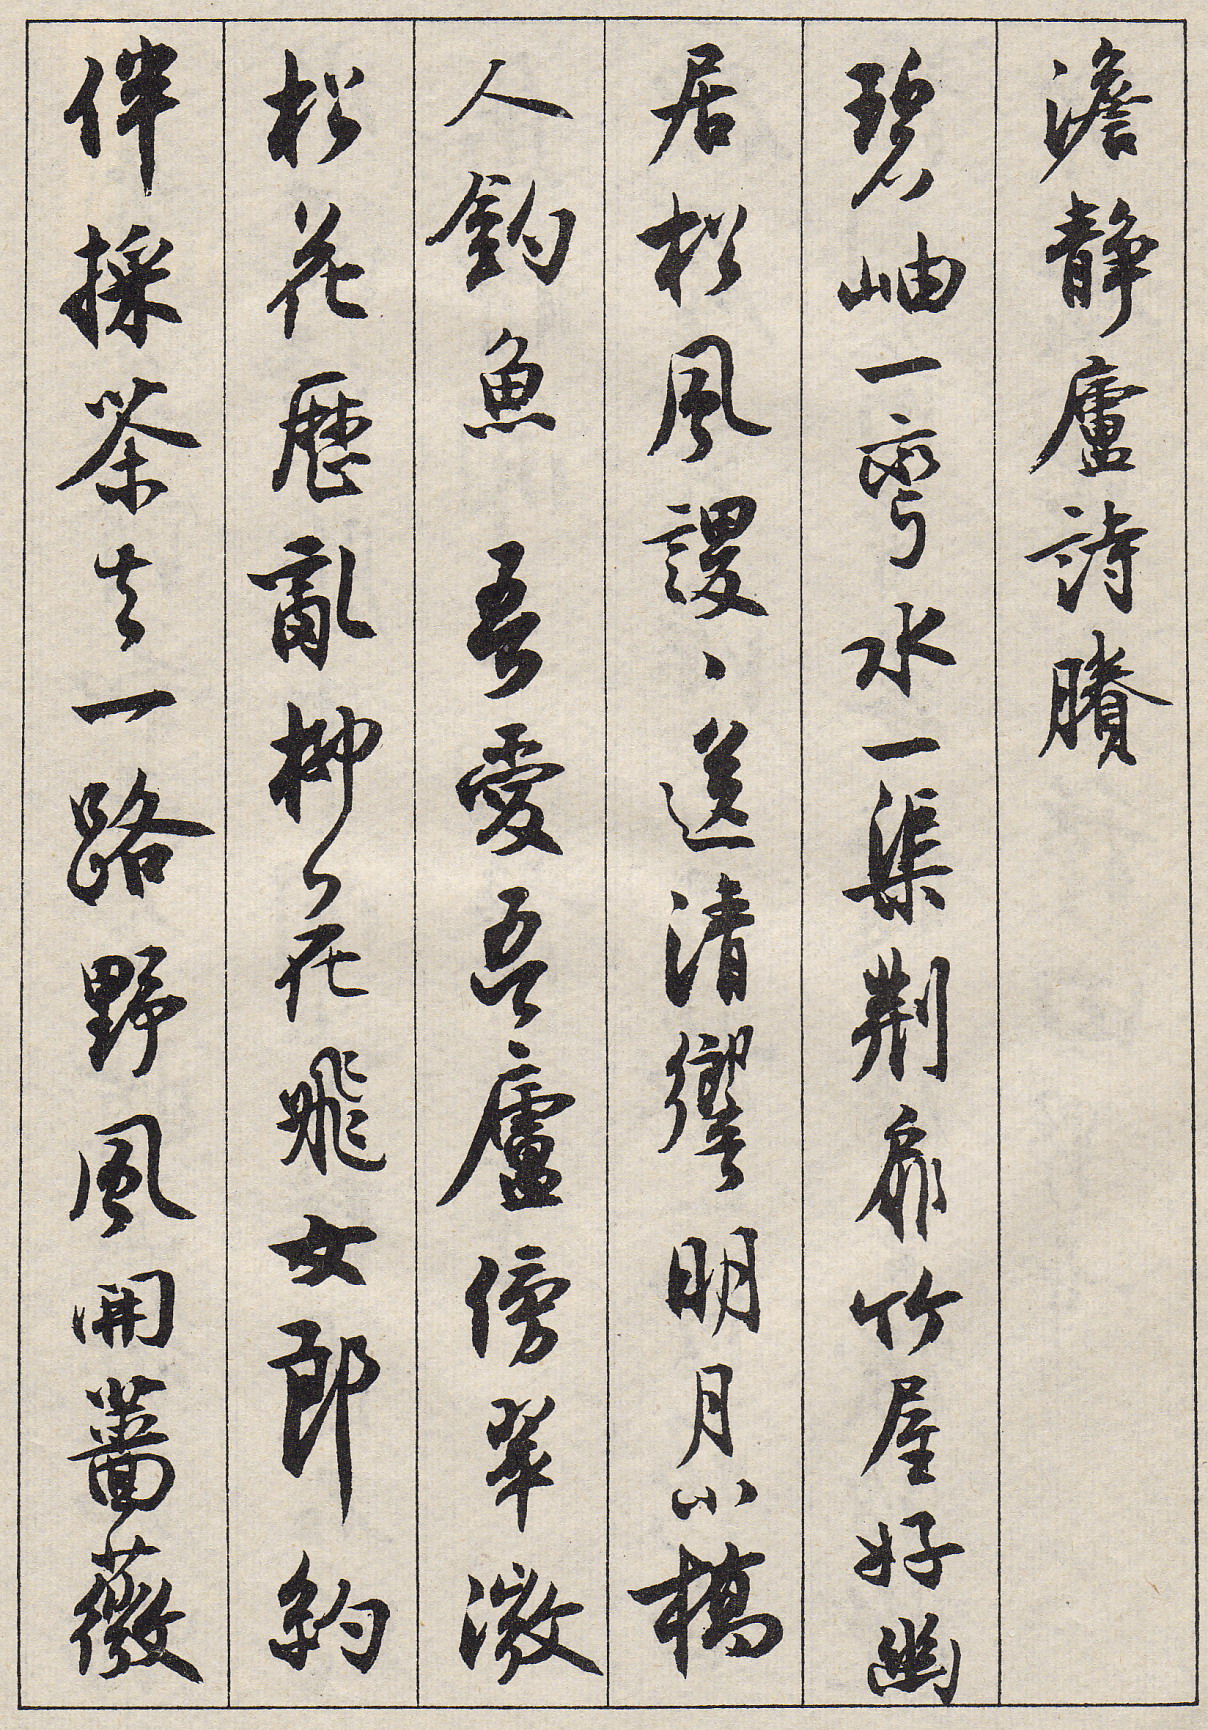 澹靜廬詩賸
碧岫一彎水一渠荆扉竹屋好幽
居松風謖、送清響明月小橋
人釣魚 吾愛吾廬傍翠微
松花歷亂柳花飛女郎約
伴採茶去一路野風開薔薇